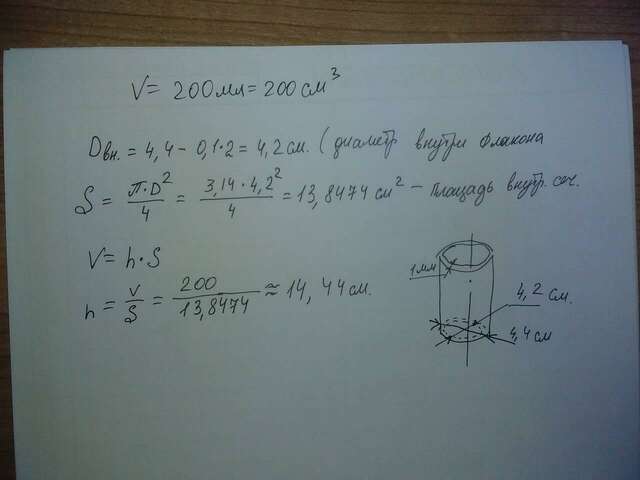 V = 200 мл = 200 см³
Dвн. = 4,4 - 0,1·2 = 4,2 см. (диаметр внутри флакона
S = П·D²/4 = 3,14·4,2²/4 = 13,8474 см² - площадь внутр. сеч.
V = h·S
h = V/S = 200/13,8474 ≈ 14,44 см.
1 мм
4,2 см.
4,4 см